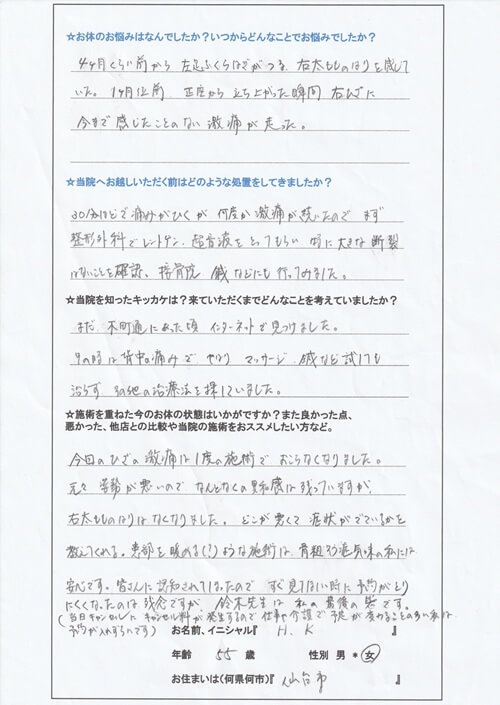 ☆お体のお悩みはなんでしたか？いつからどんなことでお悩みでしたか？
4ヶ月くらい前から 左足ふくらはぎがつる、右太もものはりを感じて
いた。1ヶ月位前 正座から立ち上がった瞬間 右ひざに
今まで感じたことのない激痛が走った。
☆当院へお越しいただく前はどのような処置をしてきましたか？
30分ほどで痛みがひくが 何度か激痛が続いたので まず
整形外科でレントゲン、超音波をとってもらい 特に大きな断裂
はないことを確認、接骨院 鍼などにも行ってみました。
☆当院を知ったキッカケは？来ていただくまでどんなことを考えていましたか？
まだ 木町通にあった頃 インターネットで見つけました。
その時は背中の痛みで やはり マッサージ、鍼など試しても
治らず その他の治療法を探していました。
☆施術を重ねた今のお体の状態はいかがですか？また良かった点、
悪かった、他店との比較や当院の施術をおススメしたい方など。
今回のひざの激痛は1度の施術で おこらなくなりました。
元々 姿勢が悪いので なんとなくの異和感は残っていますが、
右太もものはりはなくなりました。どこが悪くて 症状がでているかを
教えてくれる。患部を暖める(？)ような施術は、骨粗しょう症気味の私には
安心です。皆さんに認知されてしまったので すぐ見てほしい時に 予約がとり
にくくなったのは残念ですが、鈴木先生は 私の最後の砦です。
(当日キャンセルに キャンセル料が発生するので 仕事や介護で予定が変わることの多い私は
予約が入れずらいです)
お名前、イニシャル『 H. K 』
年齢 55 歳 性別 男 * 女
お住まいは(何県何市)『 仙台市 』